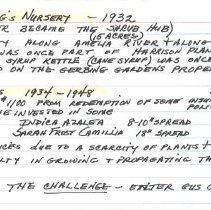 G'S NURSERY - 1932
ER BECAME THE SHRUB HUB)
(15 ACRES)
TY ALONG AMELIA RIVER & ALONG
WAS ONCE PART OF HARRISON PLAN
SYRUP KETTLE (CANE SYRUP) WAS ONCE
D ON THE GERBING GARDENS PROPE
1934 - 1948
$1100 FROM REDEMPTION OF SOME INSU
E INVESTED IN SOME
INDICA AZALEA 8-10" SPREAD
SARAH FROST CAMILIA 18" SPREAD
CES DUE TO A SCARCITY OF PLANTS &
LTY IN GROWING & PROPAGATING TH
THE CHALLENGE - ENTER GUS G